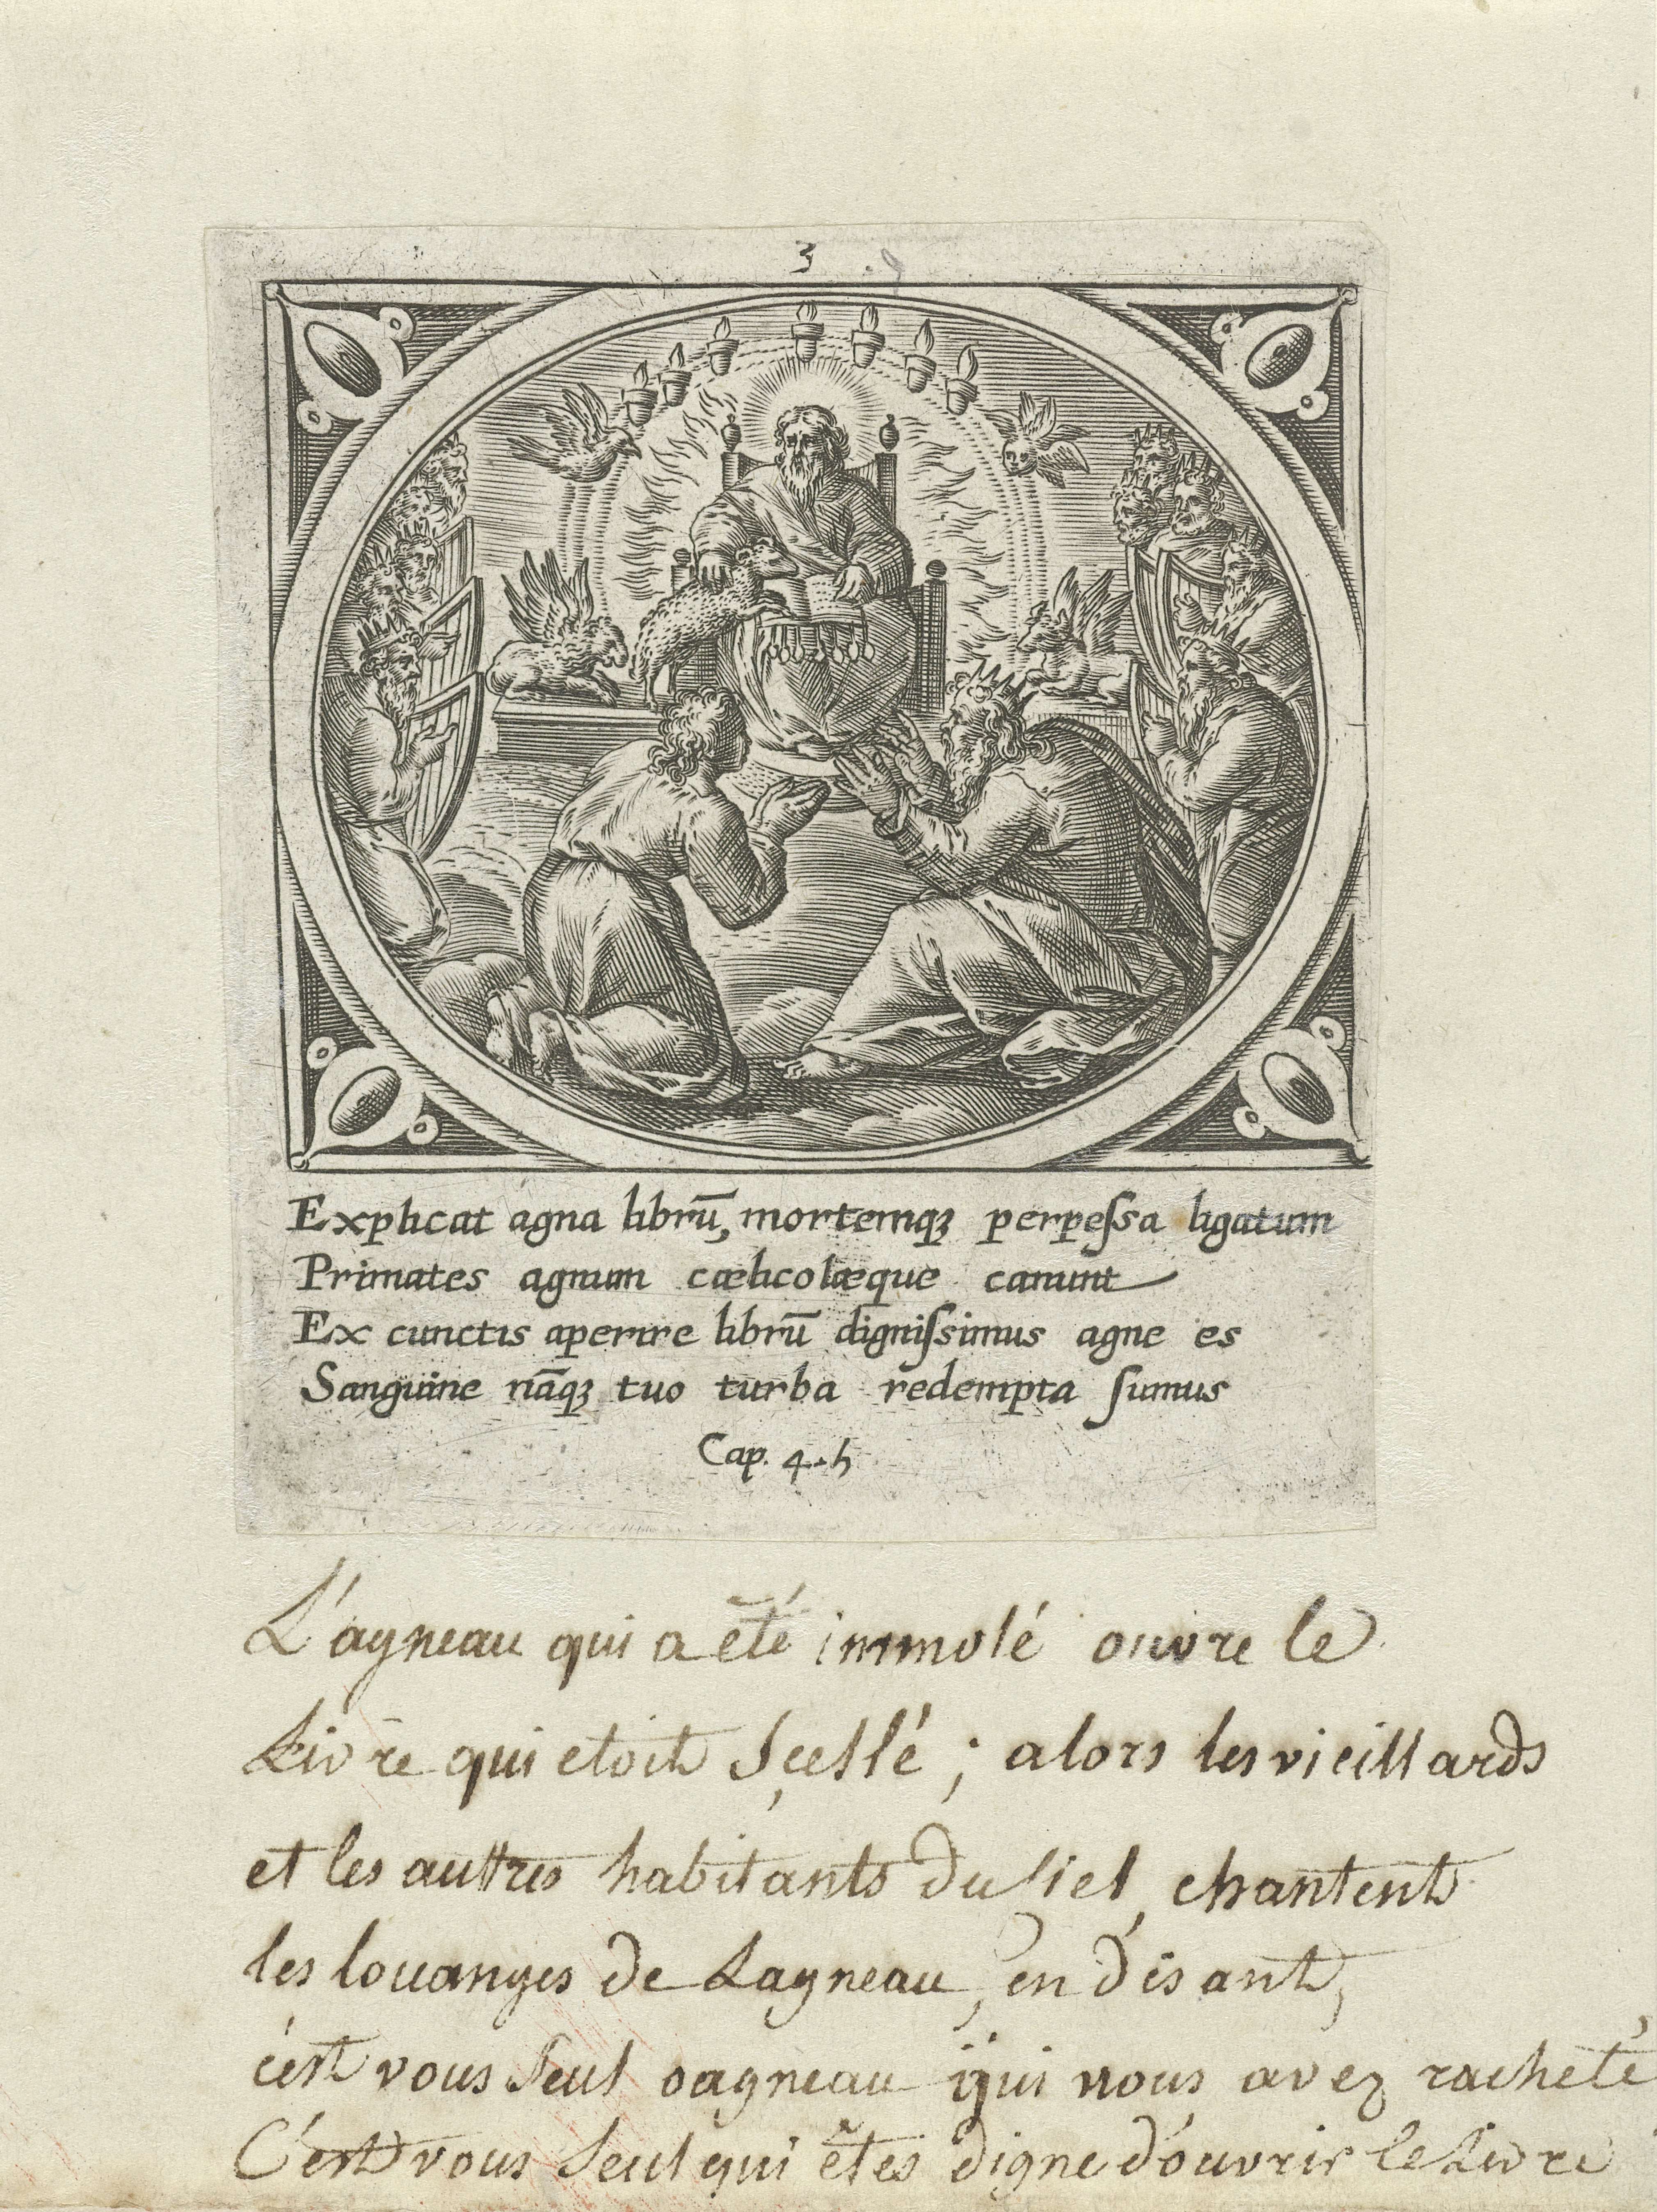 3 9
Explicat agna librū, mortemqꝫ perpeſsa ligatum
Primates agnum cælicolæque canunt
Ex cunctis aperire librū digniſsimus agne es
Sanguine nāqꝫ tuo turba redempta ſumus
Cap. 4.5
L'agneau qui a été immolé ouvre le
Livre qui etoit Sçellé ; alors les vieillards
et les auttres habitants du Siel, chantent
les louanges de Lagneau, en disant,
c'est vous Seul oagneau qui nous avez racheté
C'est vous Seul qui êtes digne d'ouvrir le Livre